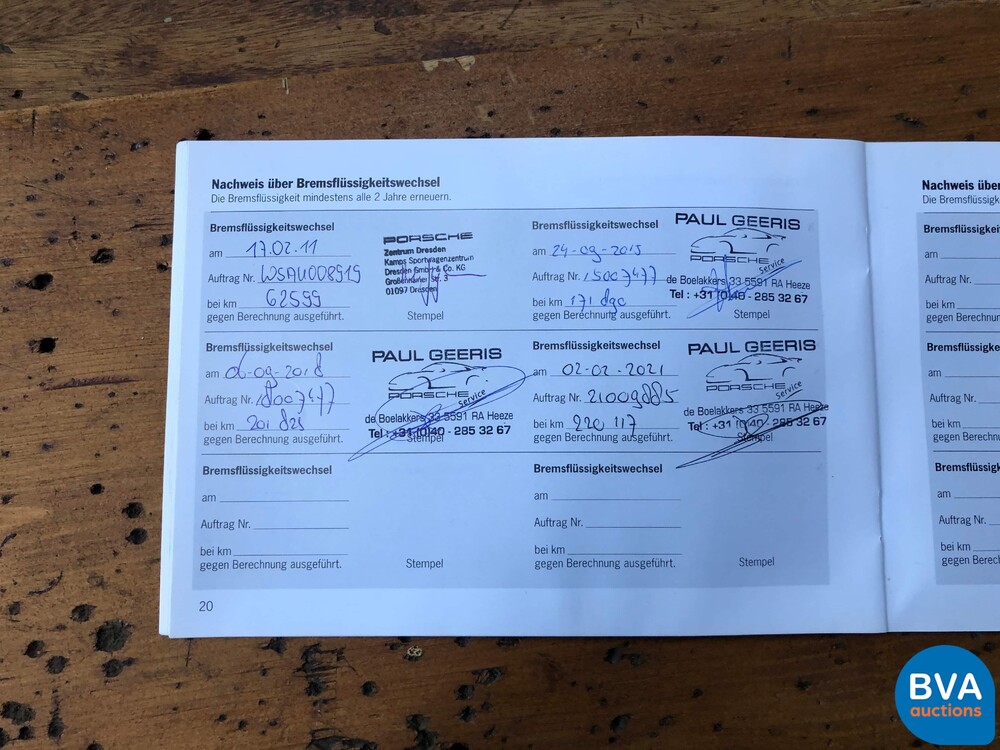 Nachweis über Bremsflüssigkeitswechsel
Die Bremsflüssigkeit mindestens alle 2 Jahre erneuern.
Bremsflüssigkeitswechsel
am 17.02.11
Auftrag Nr. WSAU008919
bei km 62599
gegen Berechnung ausgeführt.
Stempel
PORSCHE
Zentrum Dresden
Kamps Sportwagenzentrum
Dresden GmbH & Co. KG
Großenhainer Str. 3
01097 Dresden
Bremsflüssigkeitswechsel
am 24-09-2015
Auftrag Nr. 15007477
bei km 171
gegen Berechnung ausgeführt.
Stempel
PAUL GEERIS
PORSCHE
Service
de Boelakkers 33 5591 RA Heeze
Tel : +31 (0)40 - 285 32 67
Bremsflüssigkeitswechsel
am 06-09-2018
Auftrag Nr. 18007477
bei km 201
gegen Berechnung ausgeführt.
Stempel
PAUL GEERIS
PORSCHE
Service
de Boelakkers 33 5591 RA Heeze
Tel : +31 (0)40 - 285 32 67
Bremsflüssigkeitswechsel
am 02-02-2021
Auftrag Nr.
bei km 220 117
gegen Berechnung ausgeführt.
Stempel
PAUL GEERIS
PORSCHE
Service
de Boelakkers 33 5591 RA Heeze
Tel : +31 (0)40 - 285 32 67
Bremsflüssigkeitswechsel
am
Auftrag Nr.
bei km
gegen Berechnung ausgeführt.
Stempel
Bremsflüssigkeitswechsel
am
Auftrag Nr.
bei km
gegen Berechnung ausgeführt.
Stempel
20
Nachweis
Die Bremsflüs
am
Auftrag Nr.
bei km
gegen Berechnun
am
Auftrag Nr.
bei km
gegen Berechn
am
Auftrag Nr.
bei km
gegen Berech
BVA
auctions